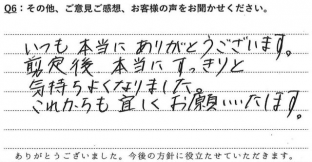 Q6：その他、ご意見ご感想、お客様の声をお聞かせください。
いつも本当にありがとうございます。
剪定後本当にすっきりと
気持ちよくなりました。
これからも宜しくお願いいたします。
ありがとうございました。今後の方針に役立たせていただきます。